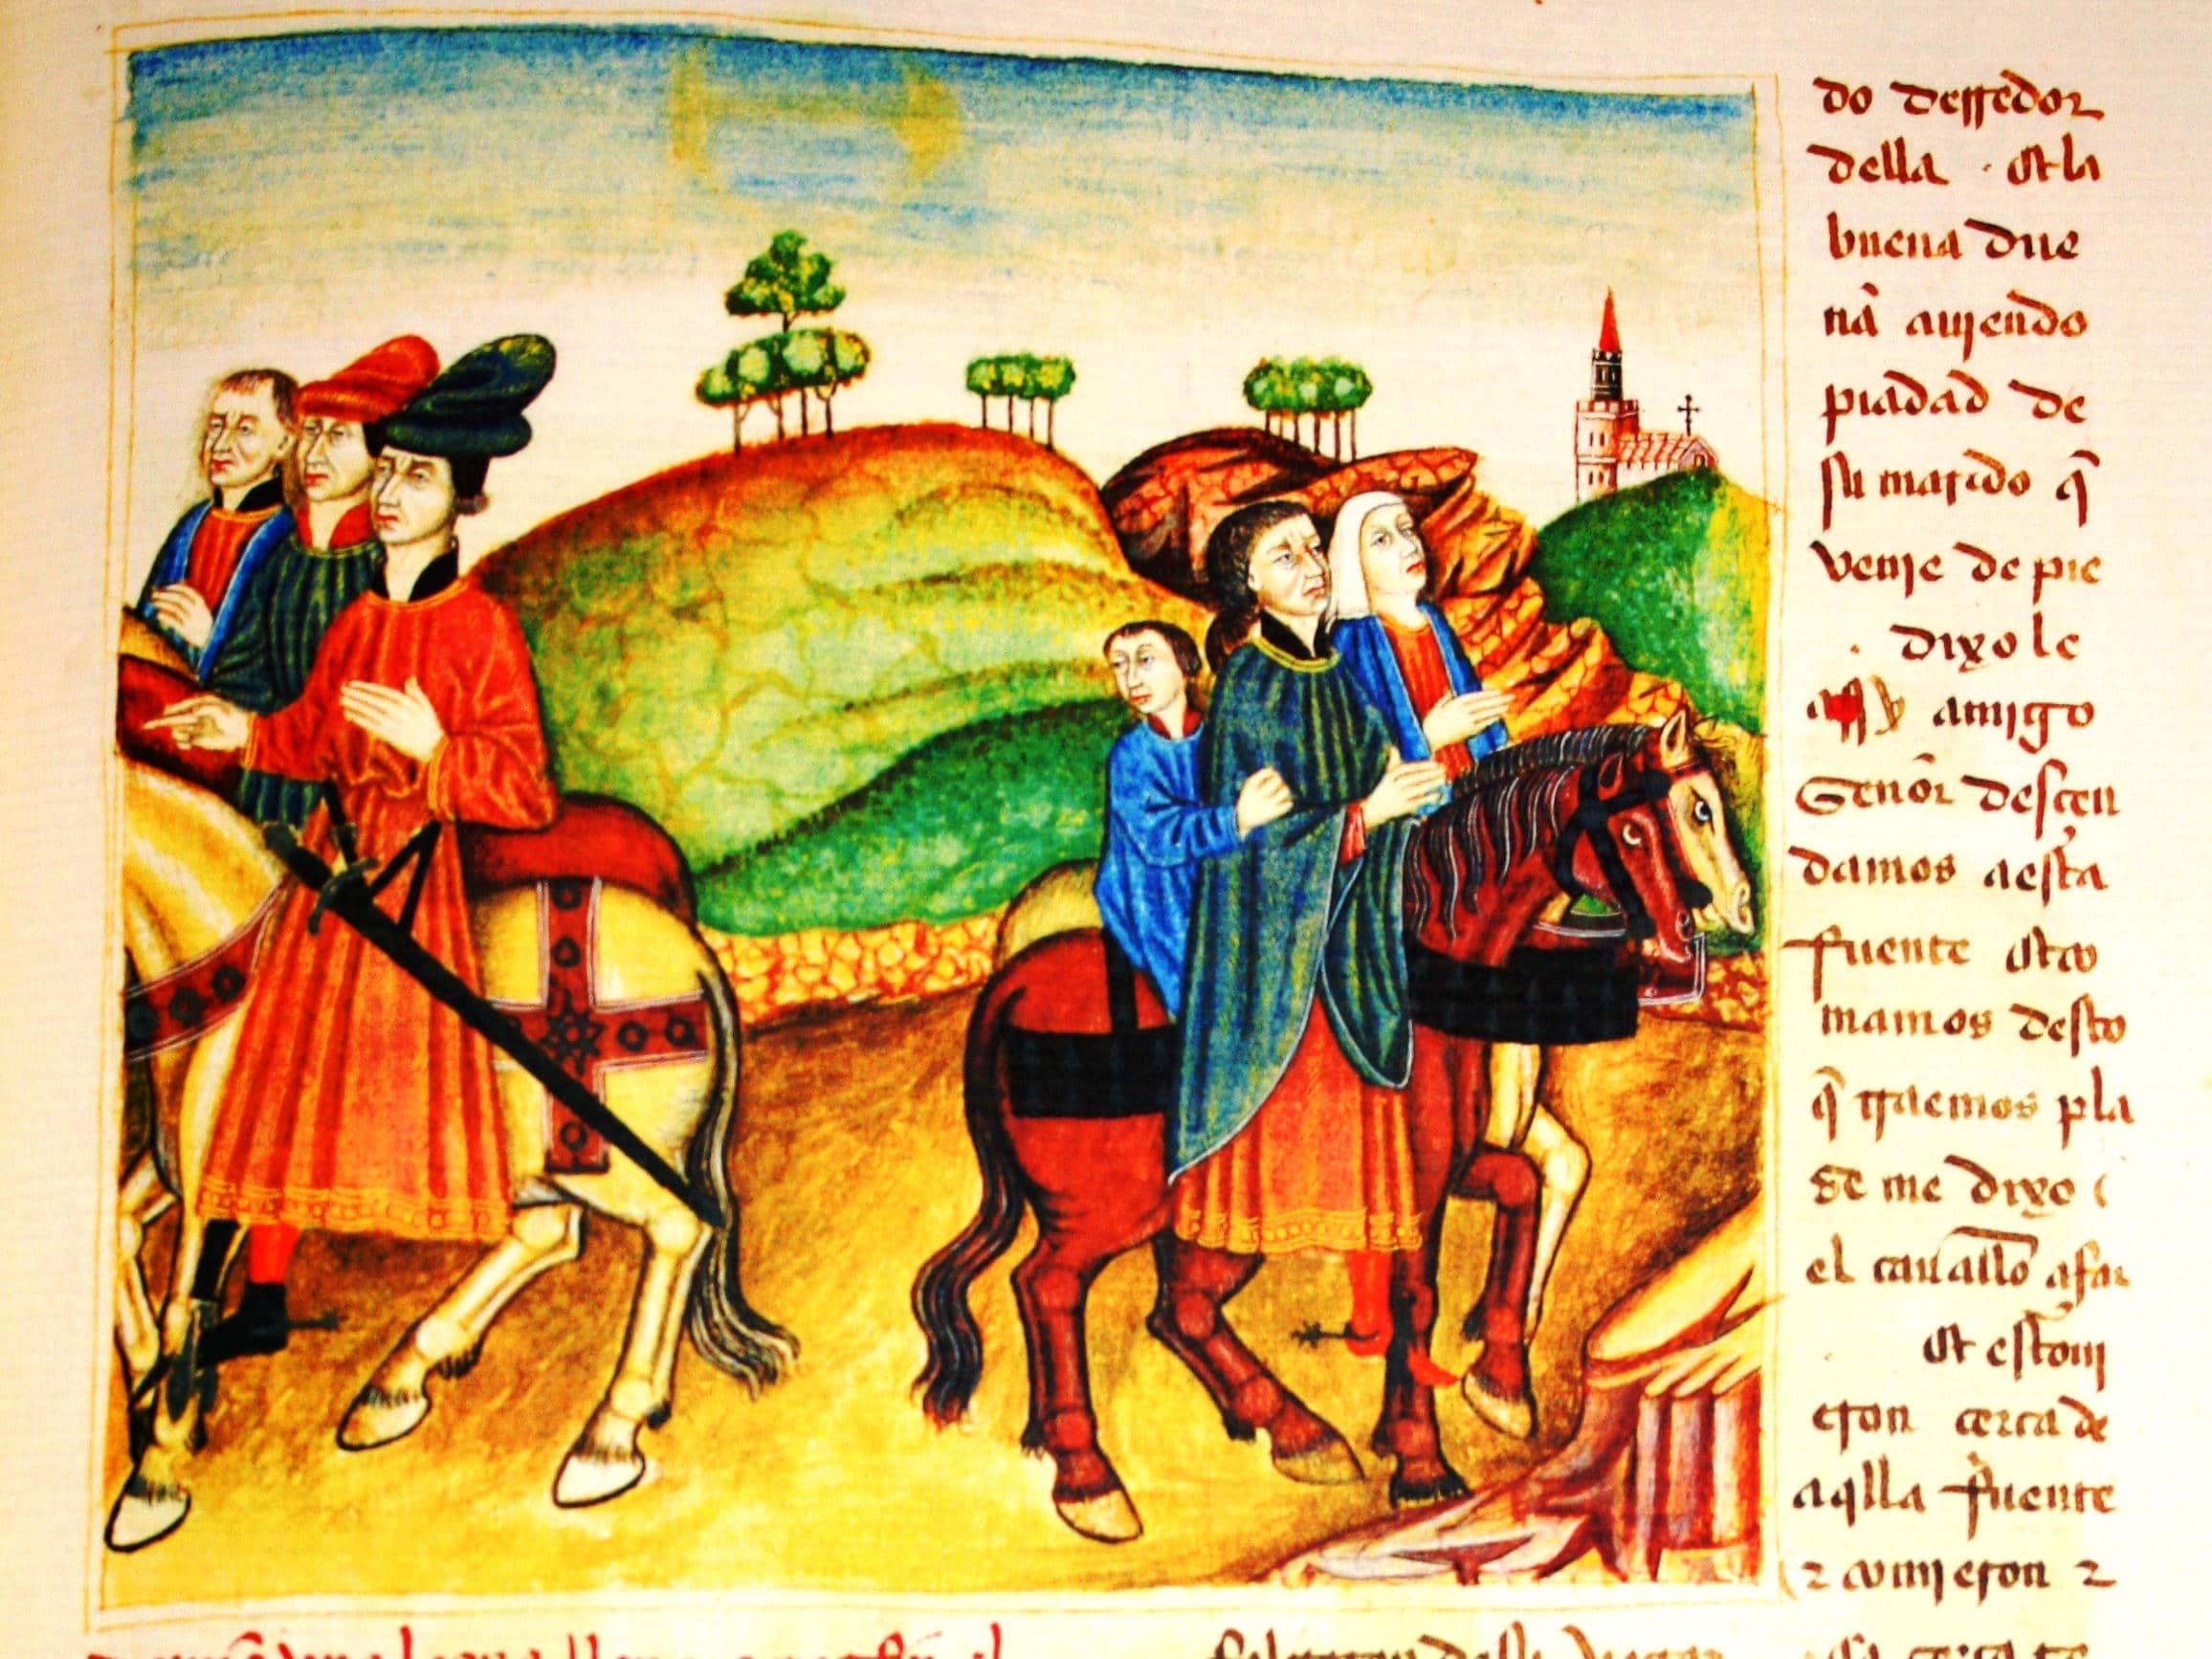 do derredor
della · Et la
buena due
nâ auiendo
piadad de
su marido q̄
venie de pie
. dixo le
amigo
Señor desçen
damos a esta
fuente Et co
mamos desto
q̄ traemos pla
se me dixo
el cauallo afar
Et estoui
eron cerca de
aqlla fuente
τ comieron τ